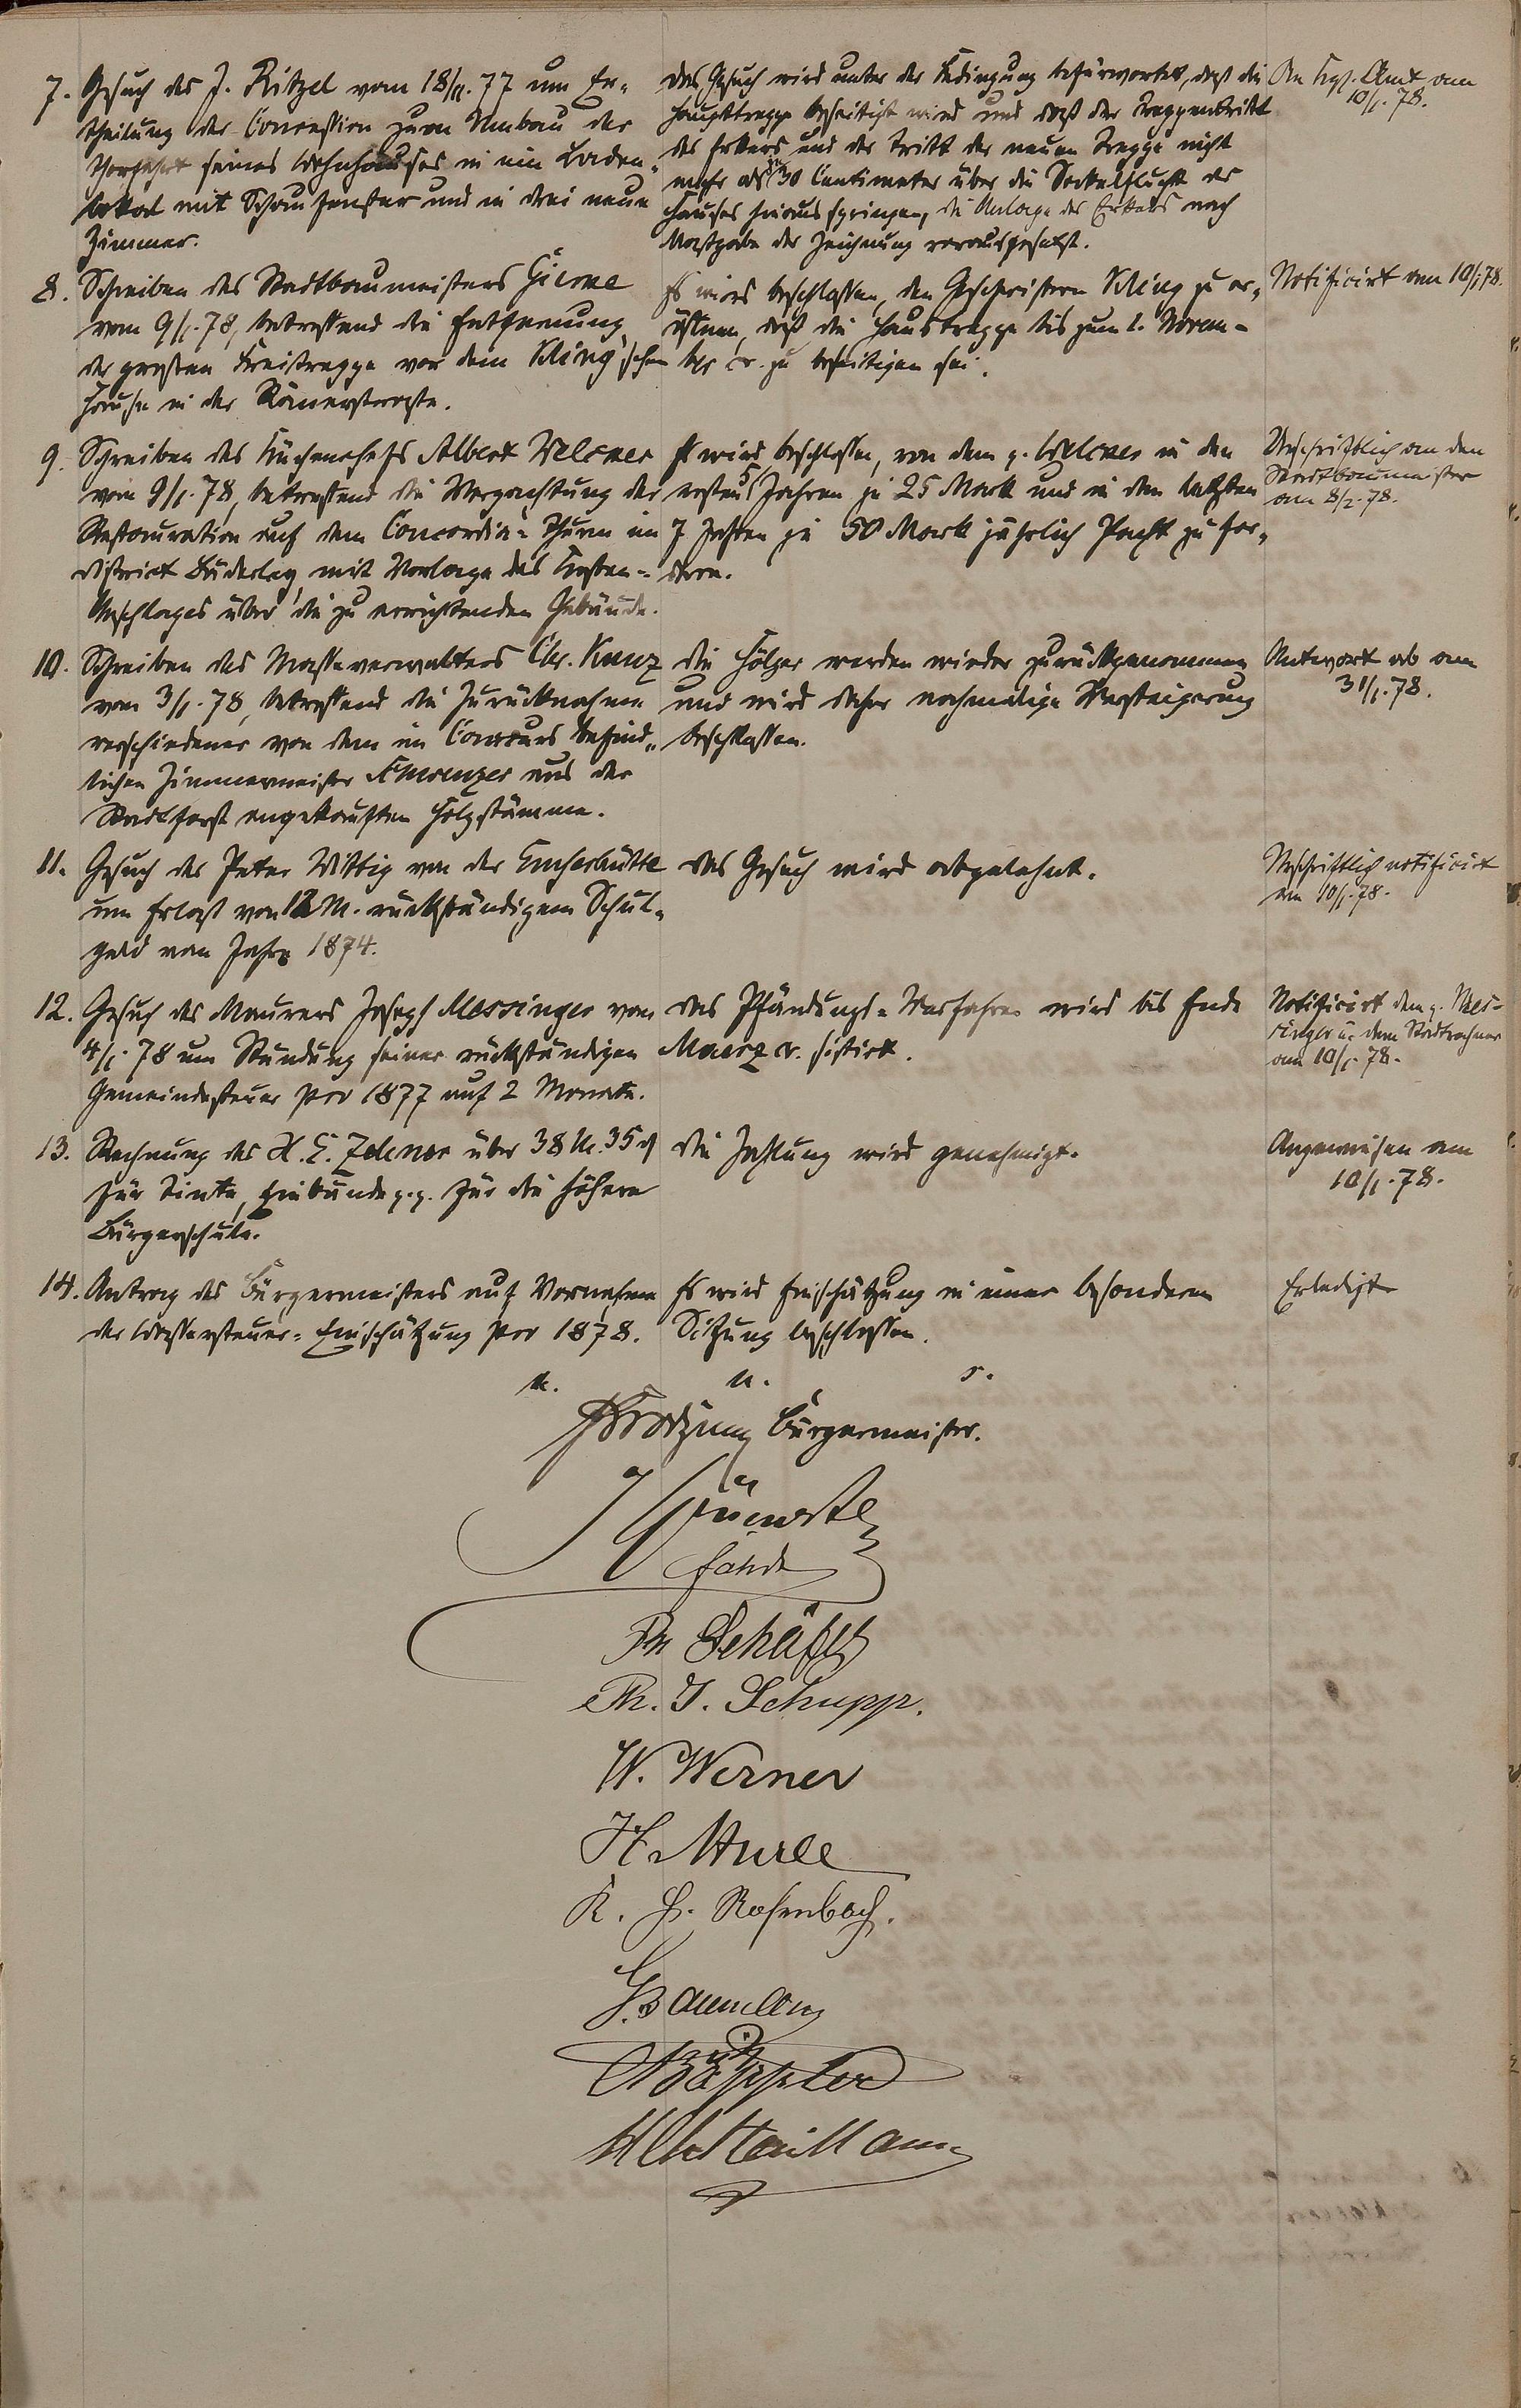 7. Gesuch des J. Ritzel vom 18/11.77 um Er-
theilung der Concession zum Umbau der
Thorfahrt seines Wohnhauses in ein Laden-
lokal mit Schaufenster und in drei neue
Zimmer.
Das Gesuch wird unter der Bedingung befürwortet, daß die
Haupttreppe beseitigt wird und daß der Treppentritt
des Erkers und der Tritt der neuen Treppe nicht
mehr als 30 Centimeter über die Sockelflucht des
Hauses hinaus springen, die Anlage des Erkers nach
Maßgabe der Zeichnung vorausgesetzt.
An Kgl. Amt am
10/1.78.
8. Schreiben des Stadtbaumeisters
vom 9/1.78, betreffend die Entfernung
der großen Freitreppe vor dem Kling'schen
Hause in der Römerstraße.
Es wird beschlossen, den Geschwistern Kling zu er-
öffnen, daß die Haustreppe bis zum 1. Novem-
ber cr. zu beseitigen sei.
Notificirt am 10/1.78.
9. Schreiben des Küchenchefs Albert Welcker
vom 9/1.78, betreffend die Verpachtung der
Restauration auf dem Concordia-Thurm im
District Bäderley, mit Vorlage des Kosten-
Anschlages über die zu errichtenden Gebäude.
Es wird beschlossen, von dem p. Welcker in den
ersten 5 Jahren je 25 Mark und in den letzten
7 Jahren je 50 Mark jährlich Pacht zu for-
dern.
Urschriftlich an den
Stadtbaumeister
am 8/2.78.
10. Schreiben des Masseverwalters Chr. Kunz
vom 3/1.78, betreffend die Zurücknahme
verschiedener von dem im Concurs befind-
lichen Zimmermeister aus der
Stadtforst angekauften Holzstämme.
Die Hölzer werden wieder zurückgenommen
und wird daher nochmalige Versteigerung
beschlossen.
Antwort ab am
31/1.78.
11. Gesuch des Peter Wittig von der Emserhütte
um Erlaß von 12 M. rückständigem Schul-
geld vom Jahre 1874.
Das Gesuch wird abgelehnt.
Urschriftlich notificirt
am 10/1.78.
12. Gesuch des Maurers Joseph Messinger vom
4/1.78 um Stundung seiner rückständigen
Gemeindesteuer pro 1877 auf 2 Monate.
Das Pfändungs-Verfahren wird bis Ende
Maerz cr. sistirt.
Notificirt dem p. Mes-
singer u. dem Stadtrechner
am 10/1.78.
13. Rechnung des H. E. über 38 M. 35 ₰
für Tinte, Einbände p.p. für die höhere
Bürgerschule.
Die Zahlung wird genehmigt.
Angewiesen am
10/1.78.
14. Antrag des Bürgermeisters auf Vornahme
der Wassersteuer-Einschätzung pro 1878.
Es wird Einschätzung in einer besondern
Sitzung beschlossen.
Erledigt
v. u. s.
Bürgermeister.
Ph Schäfer
Ph. J. Schupp.
W. Werner
H.
K. H. Rosenbach.